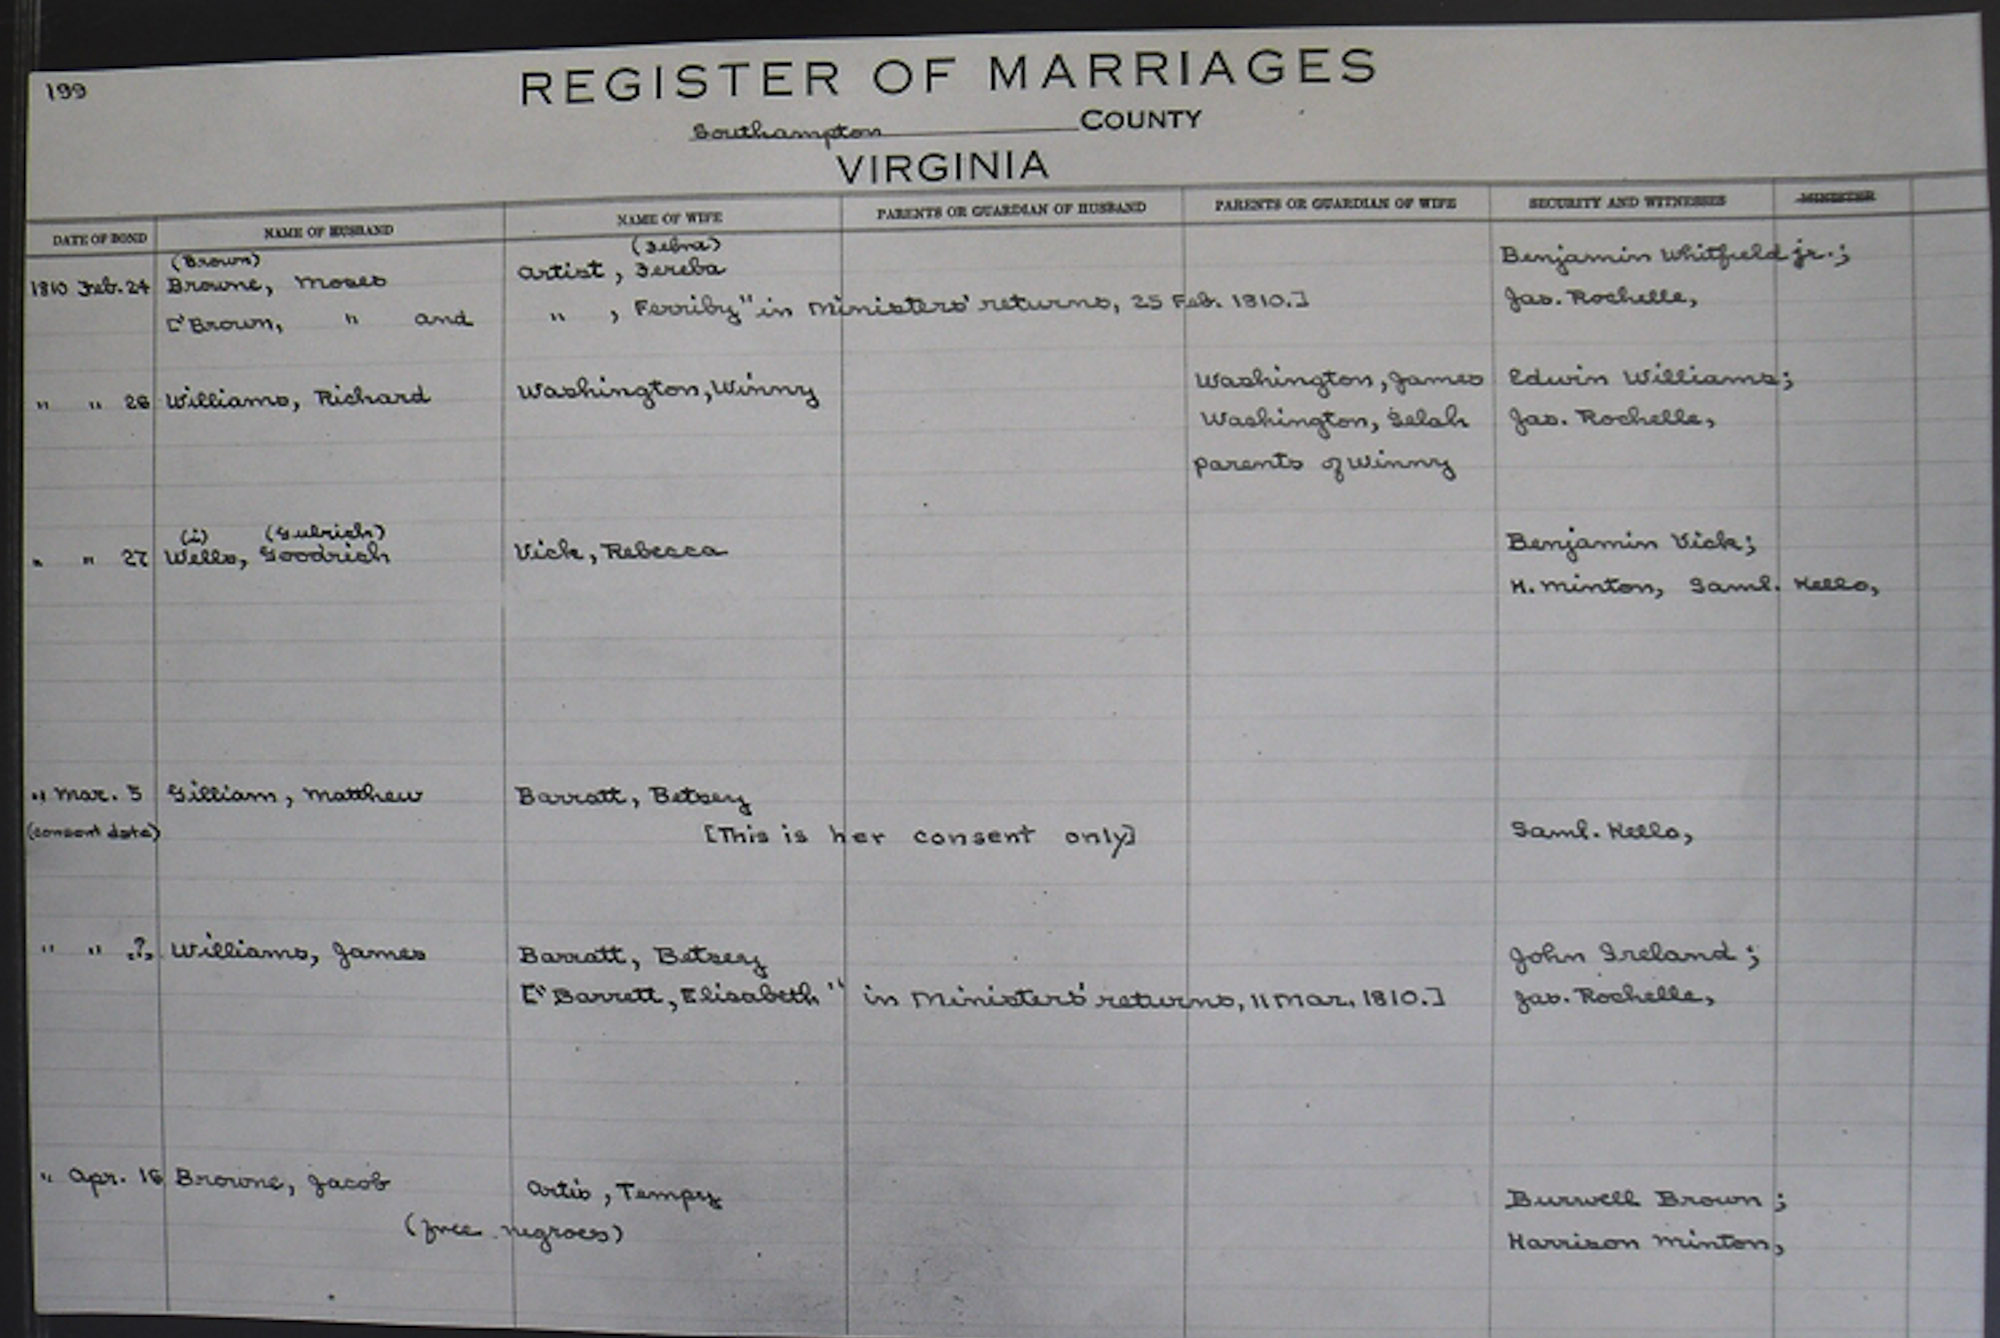 199
REGISTER OF MARRIAGES
Southampton COUNTY
VIRGINIA
DATE OF BOND NAME OF HUSBAND NAME OF WIFE PARENTS OR GUARDIAN OF HUSBAND PARENTS OR GUARDIAN OF WIFE SECURITY AND WITNESSES MINISTER
(Brown) (Febra)
1810 Feb. 24 Browne, Moses Artist, Fereba Benjamin Whitfield jr.;
["Brown, " and " , Ferriby" in Ministers' returns, 25 Feb. 1810.] Jas. Rochelle,
" " 26 Williams, Richard Washington, Winny Washington, James Edwin Williams;
Washington, Selah Jas. Rochelle,
parents of Winny
(i) (Gubrich)
" " 27 Wells, Goodrich Vick, Rebecca Benjamin Vick;
H. Minton, Saml. Kello,
" Mar. 5 Gilliam, Matthew Barratt, Betsey
(consent date) [This is her consent only] Saml. Kello,
" " ? Williams, James Barratt, Betsey John Ireland;
["Barrett, Elisabeth" in Ministers' returns, 11 Mar. 1810.] Jas. Rochelle,
" Apr. 16 Browne, Jacob Artis, Tempy Burwell Brown;
(free negroes) Harrison Minton,